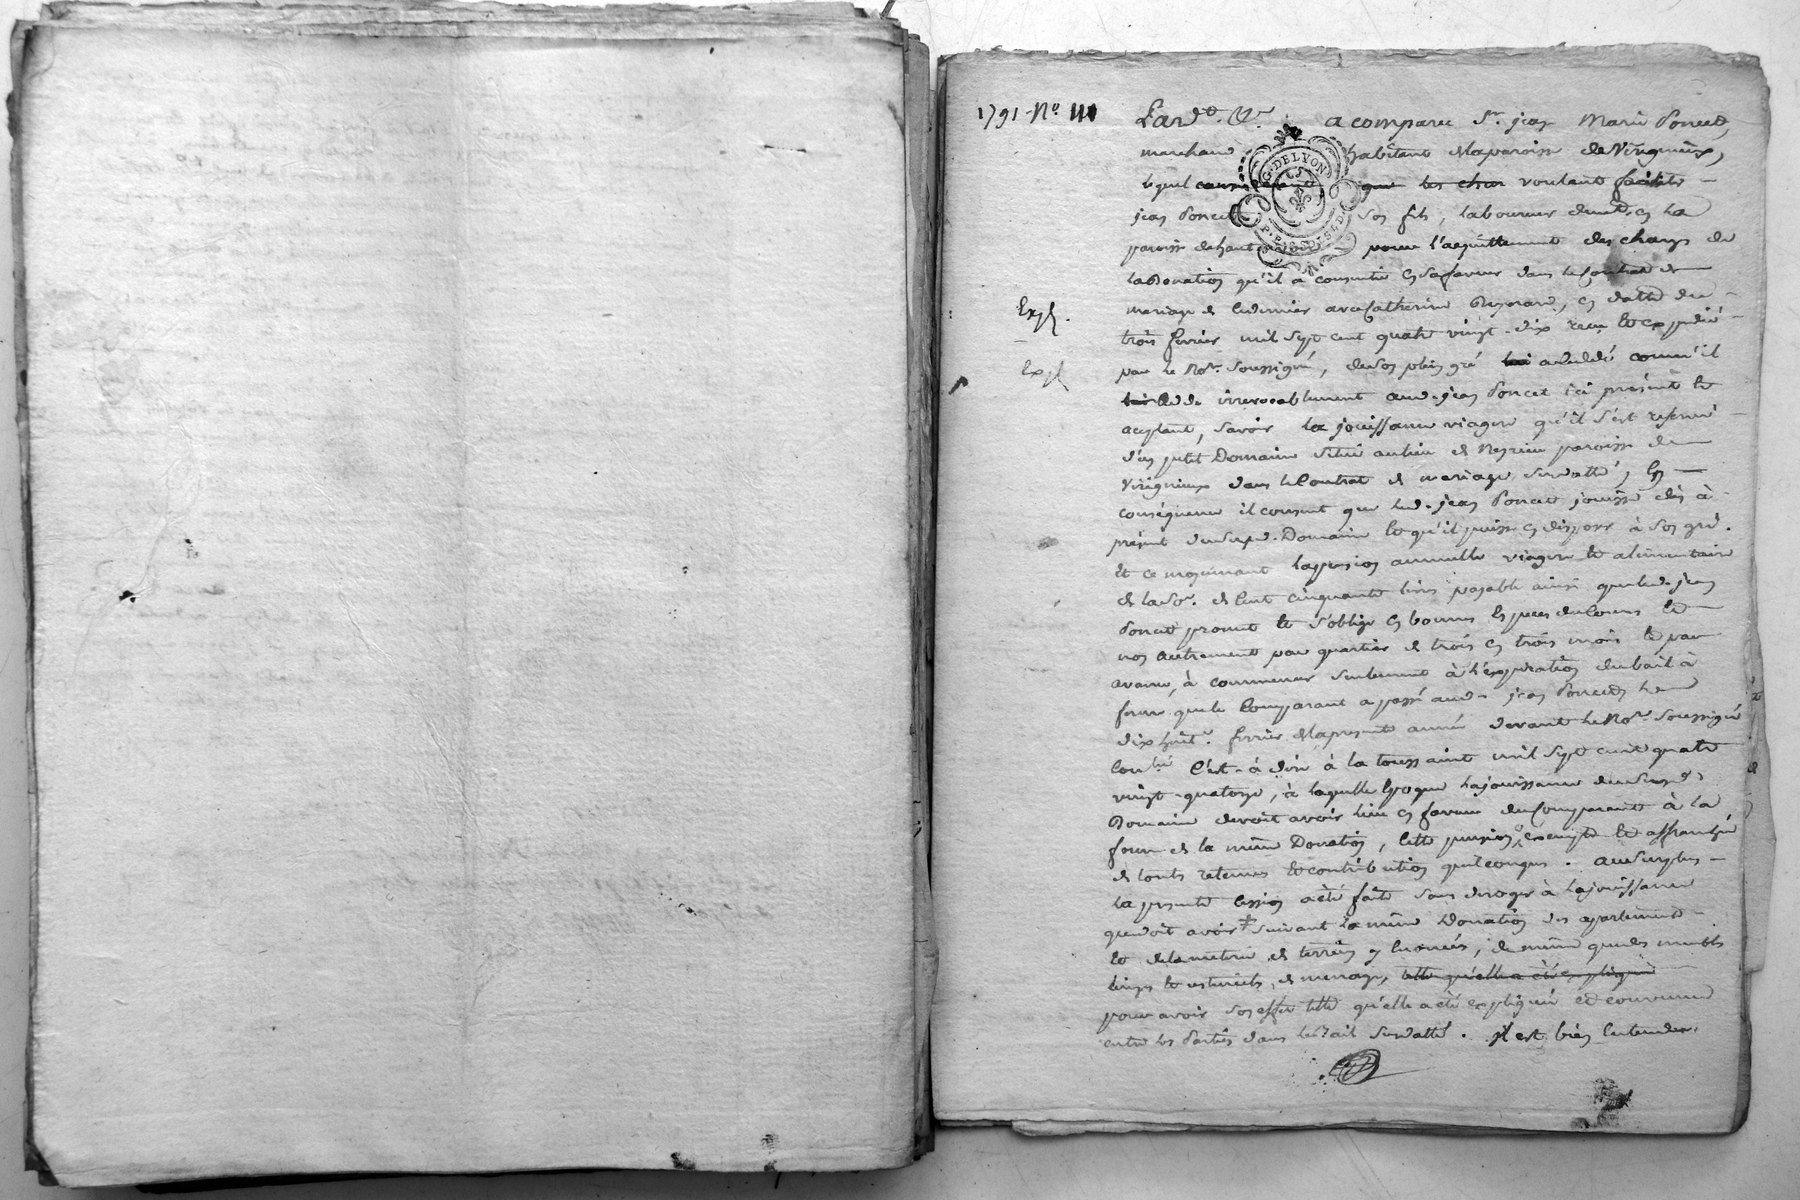 1791 - No. 111
Pardt. &a. a comparu Sr. jean Marie Poncet,
marchand habitant de la paroisse de Virignieux,
lequel considerant que les choses voulant faciliter
jean Poncet son fils, laboureur demt. en la
paroisse de haut pour l'acquittement des charges de
G. DE LYON
la Donation qu'il a consentie en sa faveur dans le Contrat de
mariage de ce dernier avec Catherine en datte du
Exp.
trois fevrier mil sept cent quatre vingt-dix recu et expedié
par le Nore. soussigné, de son plein gré lui a cédé comm'il
Exp.
lui cede irrevocablement aud. jean Poncet ici présent et
aceptant, savoir la jouissance viagere qu'il s'est reservé
d'un petit Domaine situé au lieu de paroisse de
Virignieux dans le Contrat de mariage surdatté, En
conséquence il consent que led. jean Poncet jouisse dès à
présent dususd. Domaine et qu'il puisse en disposer à son gré.
Et ce moyennant la pension annuelle viagere et alimentaire
de la so. de Cent cinquante livres payable ainsi que led. jean
Poncet promet et s'oblige en bonnes Especes de Cours et
non autrement par quartier de trois en trois mois et par
avance, à commencer seulement à l'expiration du bail à
ferme que le Comparant a passé aud. jean Poncet le
dix huit. fevrier de la presente année devant le Nore. soussigné
Conlé. C'est-à dire à la toussaint mil sept cent quatre
vingt-quatorze, à laquelle Epoque la jouissance dususd.
Domaine devoit avoir lieu en faveur du Comparant à la
forme de la même Donation, Cette pension exempte et affranchie
de toutes retenues et contribution quelconques. au surplus
la presente Cession a été faite sans deroger à la jouissance
que doit avoir suivant la même Donation des apartements
et de la metrie de terrein y Enoncés, de même que des meubles
linges et ustenciles de menage, telle qu'elle a été expliquée
pour avoir son effet telle qu'elle a été expliquée et convenue
entre les Parties dans le bail surdatté. il est bien Entendu